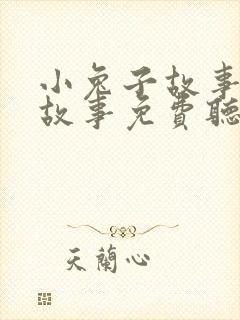 小兔子故事
故事免費聽
天蘭心